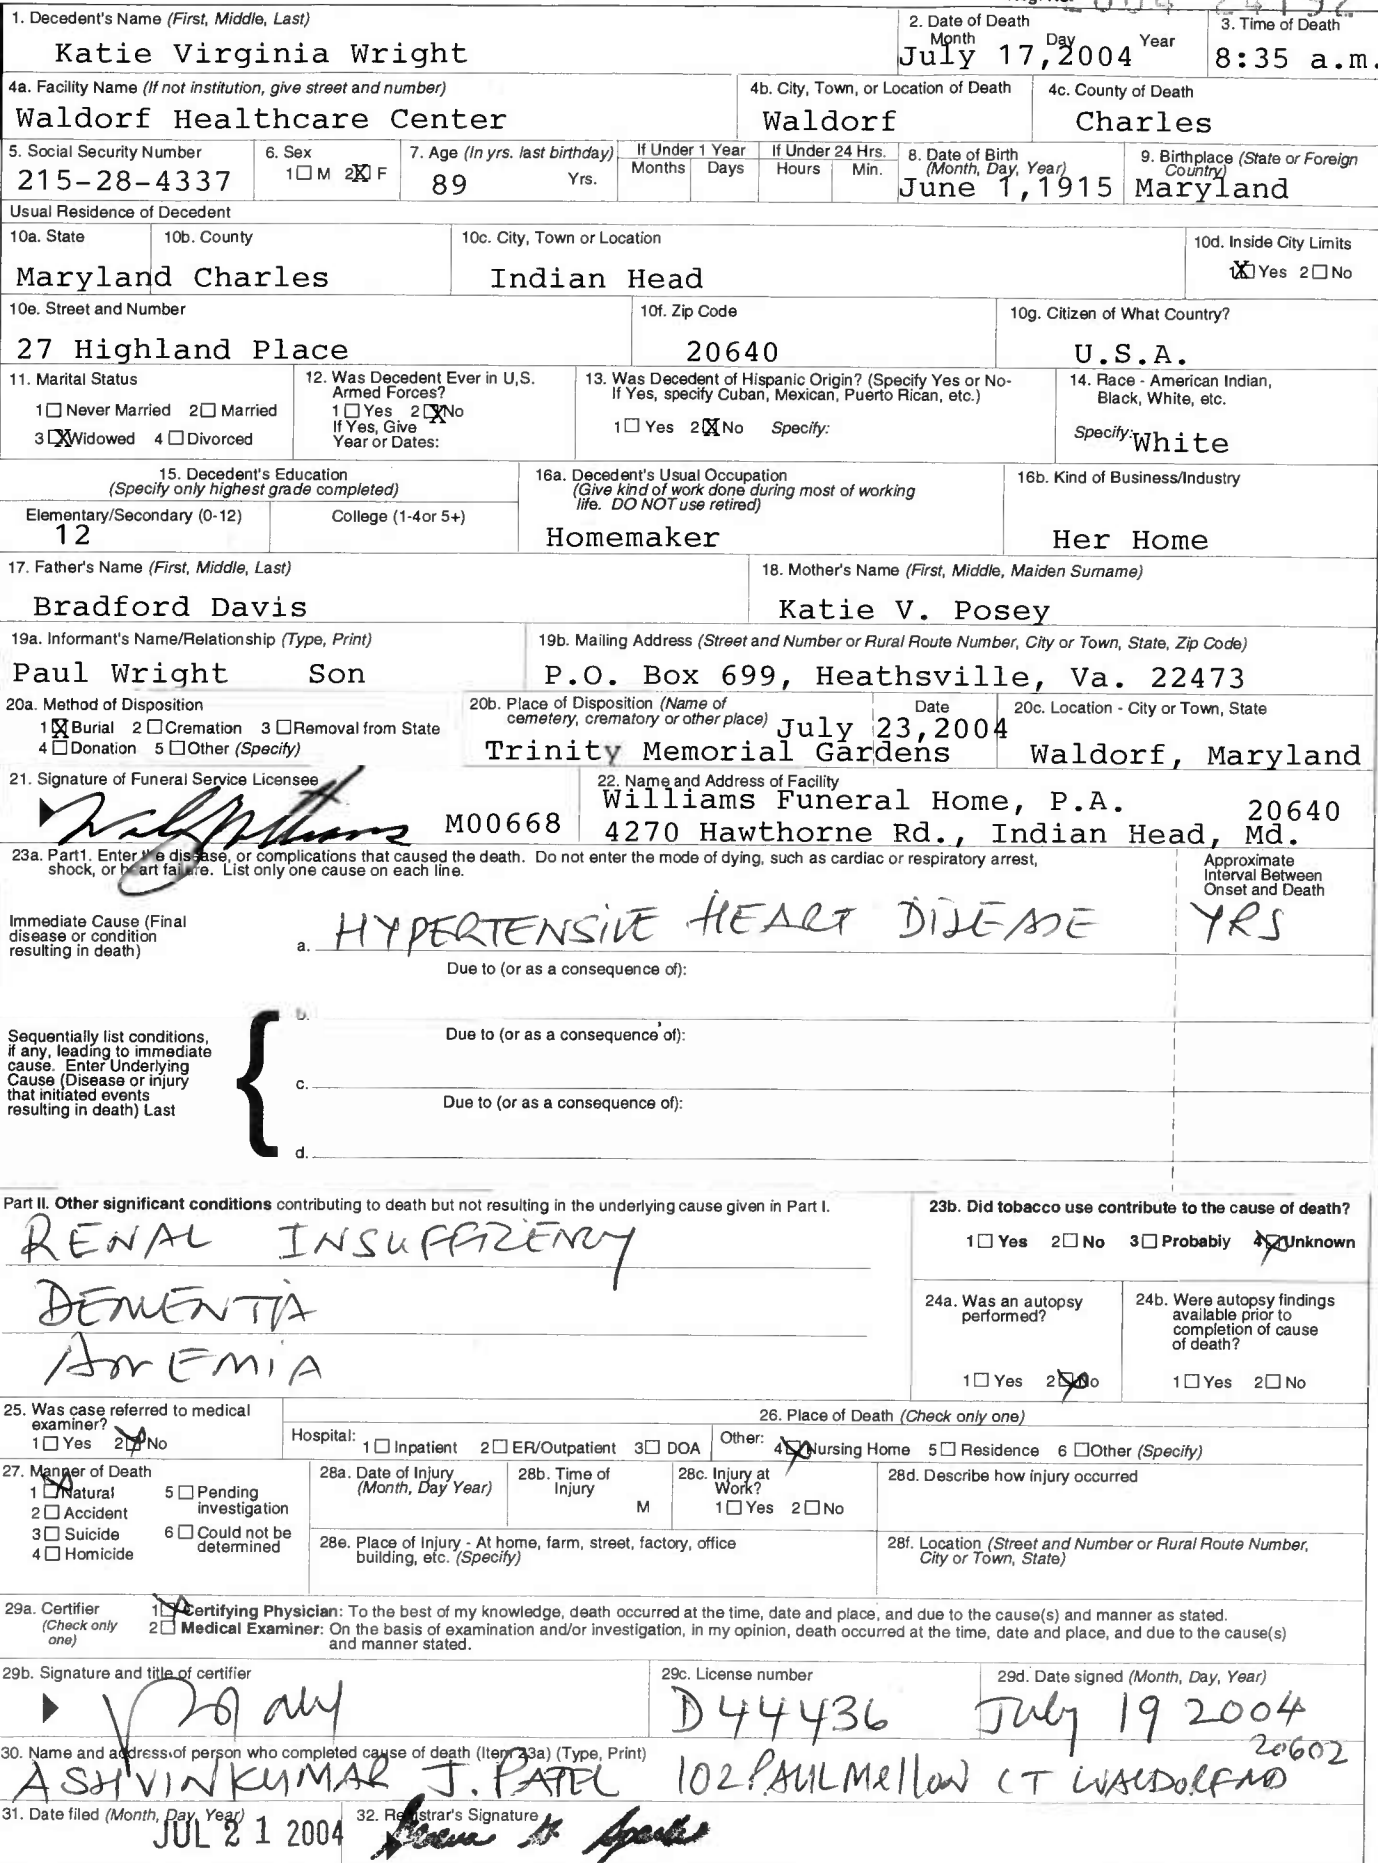 1. Decedent's Name (First, Middle, Last)
Katie Virginia Wright
2. Date of Death
Month Day Year
July 17,2004
3. Time of Death
8:35 a.m.
4a. Facility Name (If not institution, give street and number)
Waldorf Healthcare Center
4b. City, Town, or Location of Death
Waldorf
4c. County of Death
Charles
5. Social Security Number
215-28-4337
6. Sex
1☐ M 2☒ F
7. Age (In yrs. last birthday)
89 Yrs.
If Under 1 Year
Months Days
If Under 24 Hrs.
Hours Min.
8. Date of Birth
(Month, Day, Year)
June 1,1915
9. Birthplace (State or Foreign
Country)
Maryland
Usual Residence of Decedent
10a. State
Maryland
10b. County
Charles
10c. City, Town or Location
Indian Head
10d. Inside City Limits
1☒ Yes 2☐ No
10e. Street and Number
27 Highland Place
10f. Zip Code
20640
10g. Citizen of What Country?
U.S.A.
11. Marital Status
1☐ Never Married 2☐ Married
3☒ Widowed 4☐ Divorced
12. Was Decedent Ever in U,S.
Armed Forces?
1☐ Yes 2☒ No
If Yes, Give
Year or Dates:
13. Was Decedent of Hispanic Origin? (Specify Yes or No-
If Yes, specify Cuban, Mexican, Puerto Rican, etc.)
1☐ Yes 2☒ No Specify:
14. Race - American Indian,
Black, White, etc.
Specify: White
15. Decedent's Education
(Specify only highest grade completed)
Elementary/Secondary (0-12)
12
College (1-4or 5+)
16a. Decedent's Usual Occupation
(Give kind of work done during most of working
life. DO NOT use retired)
Homemaker
16b. Kind of Business/Industry
Her Home
17. Father's Name (First, Middle, Last)
Bradford Davis
18. Mother's Name (First, Middle, Maiden Surname)
Katie V. Posey
19a. Informant's Name/Relationship (Type, Print)
Paul Wright Son
19b. Mailing Address (Street and Number or Rural Route Number, City or Town, State, Zip Code)
P.O. Box 699, Heathsville, Va. 22473
20a. Method of Disposition
1☒ Burial 2☐ Cremation 3☐ Removal from State
4☐ Donation 5☐ Other (Specify)
20b. Place of Disposition (Name of
cemetery, crematory or other place)
Trinity Memorial Gardens
Date
July 23,2004
20c. Location - City or Town, State
Waldorf, Maryland
21. Signature of Funeral Service Licensee
M00668
22. Name and Address of Facility
Williams Funeral Home, P.A. 20640
4270 Hawthorne Rd., Indian Head, Md.
23a. Part1. Enter the disease, or complications that caused the death. Do not enter the mode of dying, such as cardiac or respiratory arrest,
shock, or heart failure. List only one cause on each line.
Approximate
Interval Between
Onset and Death
Immediate Cause (Final
disease or condition
resulting in death)
a. HYPERTENSIVE HEART DISEASE YRS
Due to (or as a consequence of):
b.
Due to (or as a consequence of):
Sequentially list conditions,
if any, leading to immediate
cause. Enter Underlying
Cause (Disease or injury
that initiated events
resulting in death) Last
c.
Due to (or as a consequence of):
d.
Part II. Other significant conditions contributing to death but not resulting in the underlying cause given in Part I.
RENAL INSUFFICIENCY
DEMENTIA
ANEMIA
23b. Did tobacco use contribute to the cause of death?
1☐ Yes 2☐ No 3☐ Probably 4☒ Unknown
24a. Was an autopsy
performed?
1☐ Yes 2☒ No
24b. Were autopsy findings
available prior to
completion of cause
of death?
1☐ Yes 2☐ No
25. Was case referred to medical
examiner?
1☐ Yes 2☒ No
26. Place of Death (Check only one)
Hospital: 1☐ Inpatient 2☐ ER/Outpatient 3☐ DOA
Other: 4☒ Nursing Home 5☐ Residence 6☐ Other (Specify)
27. Manner of Death
1☒ Natural
2☐ Accident
3☐ Suicide
4☐ Homicide
5☐ Pending
investigation
6☐ Could not be
determined
28a. Date of Injury
(Month, Day Year)
28b. Time of
Injury
M
28c. Injury at
Work?
1☐ Yes 2☐ No
28d. Describe how injury occurred
28e. Place of Injury - At home, farm, street, factory, office
building, etc. (Specify)
28f. Location (Street and Number or Rural Route Number,
City or Town, State)
29a. Certifier
(Check only
one)
1☒ Certifying Physician: To the best of my knowledge, death occurred at the time, date and place, and due to the cause(s) and manner as stated.
2☐ Medical Examiner: On the basis of examination and/or investigation, in my opinion, death occurred at the time, date and place, and due to the cause(s)
and manner stated.
29b. Signature and title of certifier
29c. License number
D44436
29d. Date signed (Month, Day, Year)
July 19 2004
30. Name and address of person who completed cause of death (Item 23a) (Type, Print)
ASHVINKUMAR J. PATEL 102 PAUL Mellon CT WALDORF MD 20602
31. Date filed (Month, Day, Year)
JUL 21 2004
32. Registrar's Signature